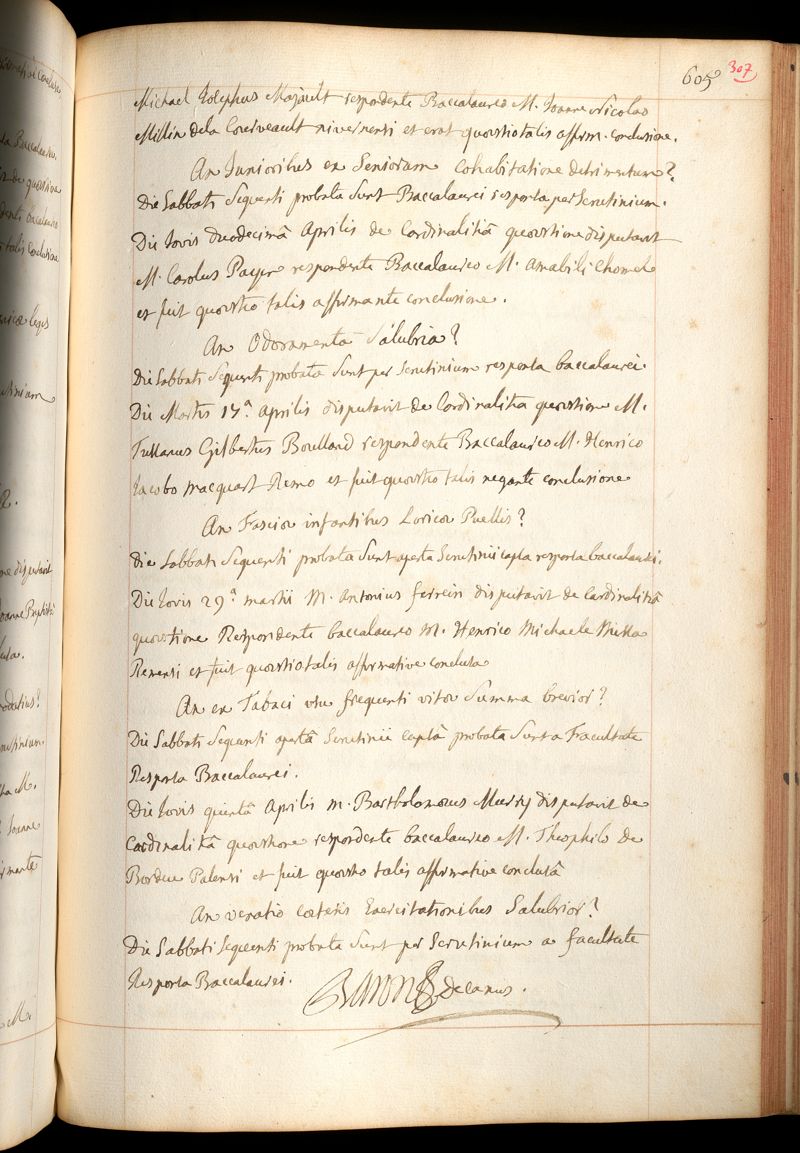 605 307
Michael Josephus Majault respondente Baccalaureo M. Joanne Nicolao
Millin dela Courveault nivernensi et erat quoestio talis affirm. conclusione.
An Junioribus ex Seniorum Cohabitatione detrimentum?
Die Sabbati Sequenti probata sunt Baccalaurei responsa per scrutinium.
Die Jovis duodecimâ Aprilis de Cardinalitiâ quoestione disputavit
M. Carolus Payen respondente Baccalaureo M. Amabili Chomel
et fuit quoestio talis affirmante conclusione.
An Odoramenta Salubria?
Die Sabbati Sequenti probata sunt per scrutinium responsa baccalaurei.
Die Martis 17.ª Aprilis disputavit de Cardinalitia quoestione M.
Tussanus Gilbertus Boulland respondente Baccalaureo M. Henrico
Jacobo macquart Remo et fuit quoestio talis negante conclusione
An Fascioe infantibus Loricoe Puellis?
Die Sabbati Sequenti probata sunt aperta Scrutinii capsa responsa baccalaurei.
Die Jovis 29.ª martii M. Antonius ferrein disputavit de Cardinalitiâ
quoestione Respondente baccalaureo M. Henrico Michaele Missa
Remensi et fuit quoestio talis affirmative conclusa
An ex Tabaci usu frequenti vitoe Summa brevior?
Die Sabbati Sequenti apertâ Scrutinii capsâ probata sunt a Facultate
Responsa Baccalaurei.
Die Jovis quintâ Aprilis m. Bartholomoeus Murry disputavit de
Cardinalitiâ quoestione respondente baccalaureo M. Theophilo de
Bordeu Palensi et fuit quoestio talis affirmative conclusâ
An venatio coeteris Exercitationibus Salubrior?
Die Sabbati Sequenti probata sunt per Scrutinium a facultate
Responsa Baccalaurei.
BARON decanus.